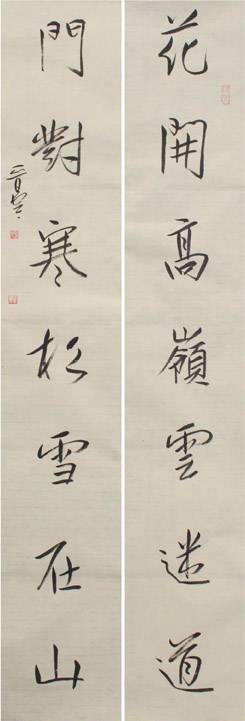 花開高嶺雲迷道
門對寒松雪在山